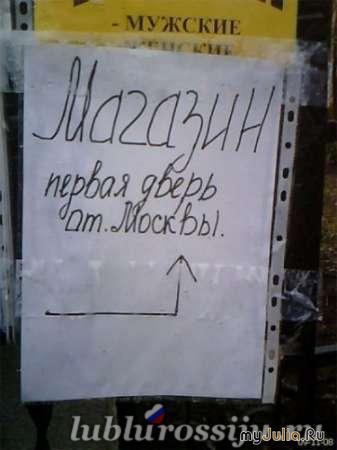 - МУЖСКИЕ
- ЖЕНСКИЕ
Магазин
первая дверь
от. Москвы.
lublurossiju.ru
myJulia.Ru